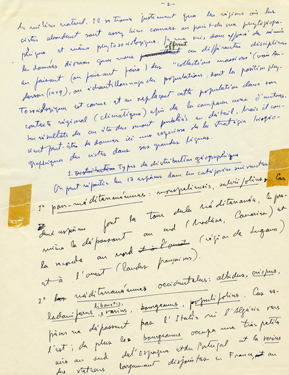 - 2 -
du milieu naturel. Il se trouve justement que les régions où les
cistes abondent sont assez bien connues au point de vue phytogéogra-
phique et même phytosociologique
les données diverses que nous offrent les différentes disciplines
en faisant (ou faisant faire) des "collections massives
un échantillonnage des populations, dont la position phyto-
sociologique est connue et en replaçant cette population dans son
contexte régional (climatique) afin de la comparer avec d'autres.
Les résultats de cette étude seront publiés en détail. Mais il con-
vient peut-être de donner ici une esquisse de la stratégie
graphique des cistes dans ses grandes lignes.
1. Types de distribution géographique
On peut répartir les 17 espèces dans les catégories suivantes:
1° pan-méditerranéennes: monspeliensis, salviifolius. Ces
deux espèces font le tour de la méditerranée, la
même la dépassant au sud (Madère, Canaries) et
la seconde au nord (région de Lugano)
et à l'ouest (Landes françaises).
2° méditerranéennes occidentales: albidus, crispus,
ladaniferus, libanotis, varius, populifolius. Ces
pèces ne dépassent pas l'Italie ni l'Algérie vers
l'est; de plus les occupe une très petite
aire au sud de l'Espagne et du Portugal et le varius
des stations largement disjointes en France, au